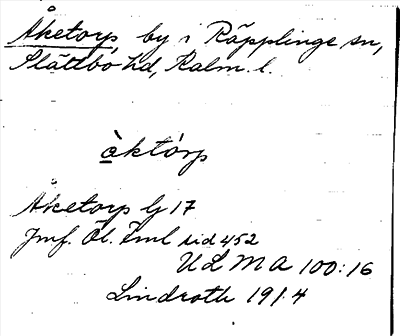 Åketorp, by i Räpplinge sn,
Slättbo hd, Kalm. l.
àktórp
Åketorp lj 17
Jmf. Öl. Fml sid 452
ULMA 100:16
Lindroth 1914